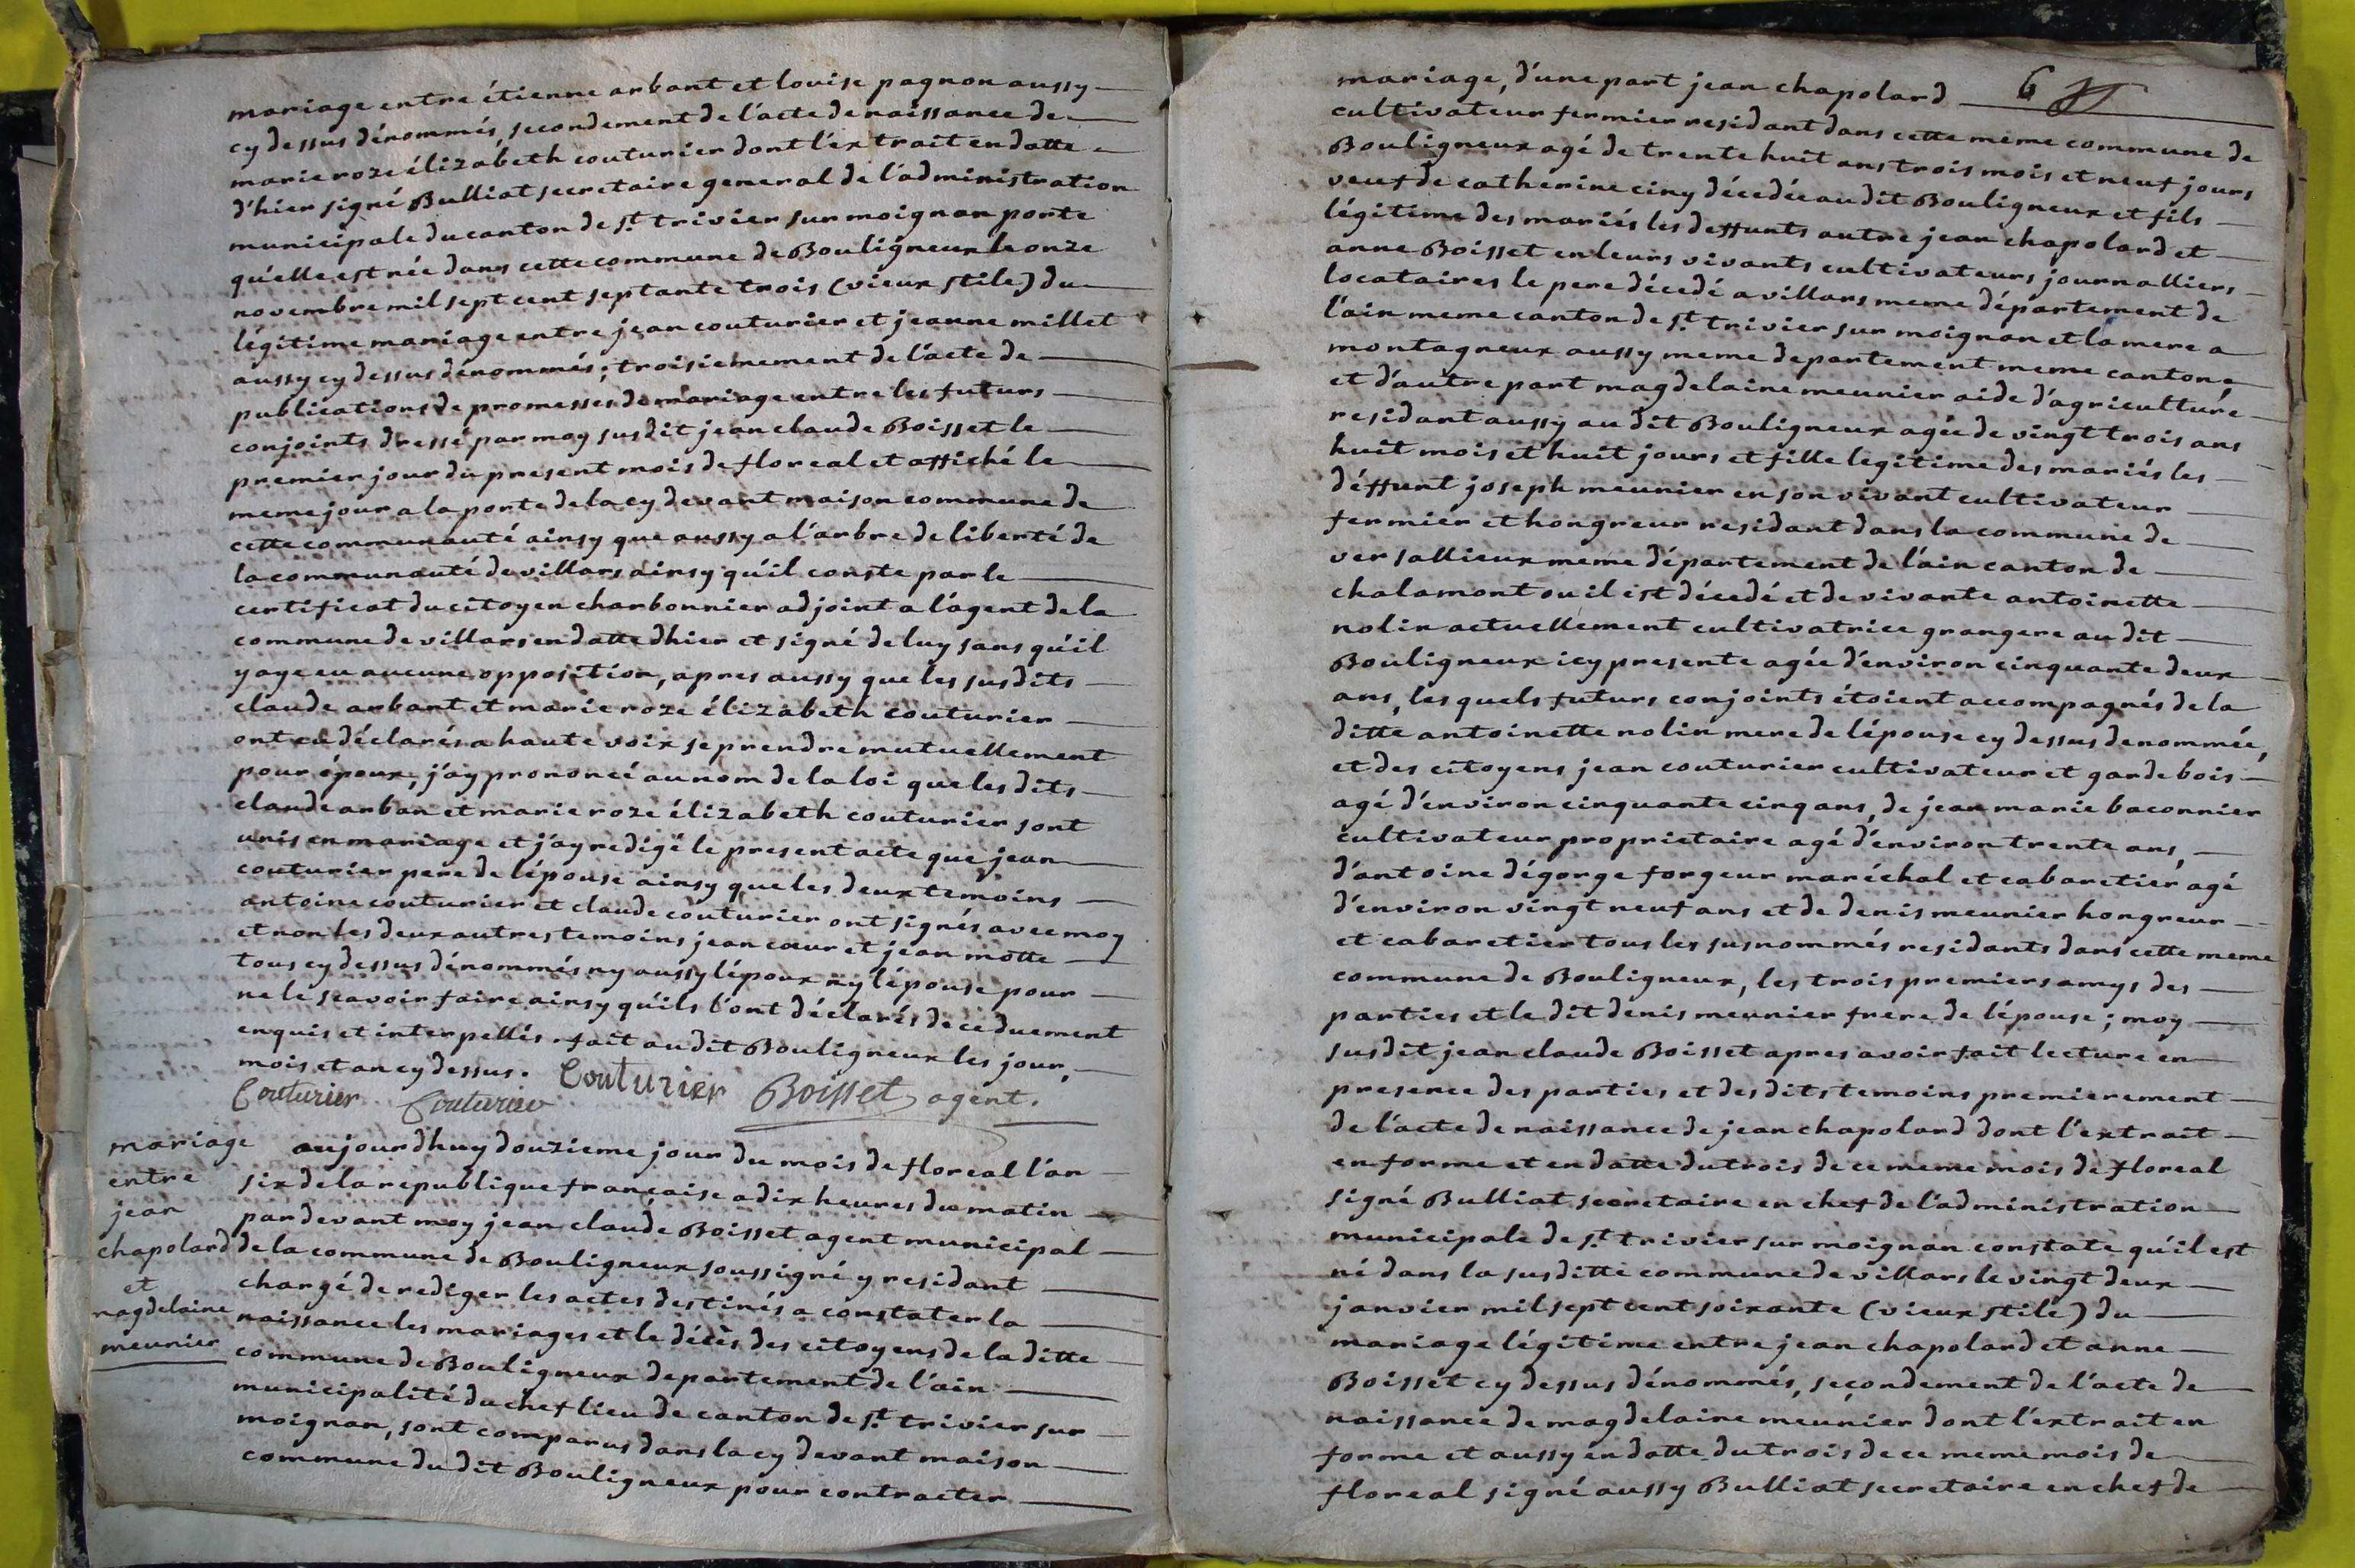 mariage entre étienne arbant et louise pagnon aussy
cy dessus dénommés, secondement de l'acte de naissance de
marie roze élizabeth couturier dont l'extrait en datte
d'hier signé Bulliat secretaire general de l'administration
municipale du canton de st. trivier sur moignan porte
qu'elle est née dans cette commune de Bouligneux le onze
novembre mil sept cent septante trois (vieux stile) du
légitime mariage entre jean couturier et jeanne millet
aussy cy dessus dénommés; troisiemement de l'acte de
publications de promesses de mariage entre les futurs
conjoints dressé par moy susdit jean claude Boisset le
premier jour du present mois de floreal et affiché le
meme jour a la porte de la cy devant maison commune de
cette communauté ainsy que aussy a l'arbre de liberté de
la communauté de villars ainsy qu'il conste par le
certificat du citoyen charbonnier adjoint a l'agent de la
commune de villars en datte dhier et signé de luy sans qu'il
y aye eu aucune opposition, apres aussy que les susdits
claude arbant et marie roze élizabeth couturier
ont eu déclarés a haute voix se prendre mutuellement
pour époux, j'ay prononcé au nom de la loi que les dits
claude arban et marie roze élizabeth couturier sont
unis en mariage et j'ay redigé le present acte que jean
couturier pere de l'épouse ainsy que les deux temoins
antoine couturier et claude couturier ont signés avec moy
et non les deux autres temoins jean cœur et jean motte
tous cy dessus dénommés ny aussy l'époux ny l'épouse pour
ne le sçavoir faire ainsy qu'ils l'ont déclarés de ce duement
enquis et interpellés. fait au dit Bouligneux les jour,
mois et an cy dessus. Couturier
Couturier Couturier Boisset agent.
mariage
entre
jean
chapolard
et
magdelaine
meunier
aujourdhuy douzieme jour du mois de floreal l'an
six de la republique française a dix heures du matin
par devant moy jean claude Boisset agent municipal
de la commune de Bouligneux soussigné y residant
chargé de rediger les actes destinés a constater la
naissance les mariages et le décès des citoyens de la ditte
commune de Bouligneux departement de l'ain
municipalité du chef lieu de canton de st. trivier sur
moignan, sont comparus dans la cy devant maison
commune du dit Bouligneux pour contracter
6
mariage, d'une part jean chapolard
cultivateur fermier residant dans cette meme commune de
Bouligneux agé de trente huit ans trois mois et neuf jours
veuf de catherine ciny décedée au dit Bouligneux et fils
légitime des mariés les deffunts autre jean chapolard et
anne Boisset en leurs vivants cultivateurs journalliers
locataires le pere décedé a villars meme département de
l'ain meme canton de st. trivier sur moignan et la mere a
montagneux aussy meme departement meme canton,
et d'autre part magdelaine meunier aide d'agriculture
residant aussy au dit Bouligneux agée de vingt trois ans
huit mois et huit jours et fille legitime des mariés les
déffunt joseph meunier en son vivant cultivateur
fermier et hongreur residant dans la commune de
versallieux meme département de l'ain canton de
chalamont ou il est décedé et de vivante antoinette
nolin actuellement cultivatrice grangere au dit
Bouligneux icy presente agée d'environ cinquante deux
ans, les quels futurs conjoints étoient accompagnés de la
ditte antoinette nolin mere de l'épouse cy dessus denommée,
et des citoyens jean couturier cultivateur et garde bois
agé d'environ cinquante cinq ans, de jean marie baconnier
cultivateur proprietaire agé d'environ trente ans,
d'antoine dégorge forgeur maréchal et cabaretier agé
d'environ vingt neuf ans et de denis meunier hongreur
et cabaretier tous les susnommés residants dans cette meme
commune de Bouligneux, les trois premiers amys des
parties et le dit denis meunier frere de l'épouse; moy
susdit jean claude Boisset apres avoir fait lecture en
presence des parties et des dits temoins premierement
de l'acte de naissance de jean chapolard dont l'extrait
en forme et en datte du trois de ce meme mois de floreal
signé Bulliat secretaire en chef de l'administration
municipale de st. trivier sur moignan constate qu'il est
né dans la susditte commune de villars le vingt deux
janvier mil sept cent soixante (vieux stile) du
mariage légitime entre jean chapolard et anne
Boisset cy dessus dénommés, secondement de l'acte de
naissance de magdelaine meunier dont l'extrait en
forme et aussy en datte du trois de ce meme mois de
floreal signé aussy Bulliat secretaire en chef de